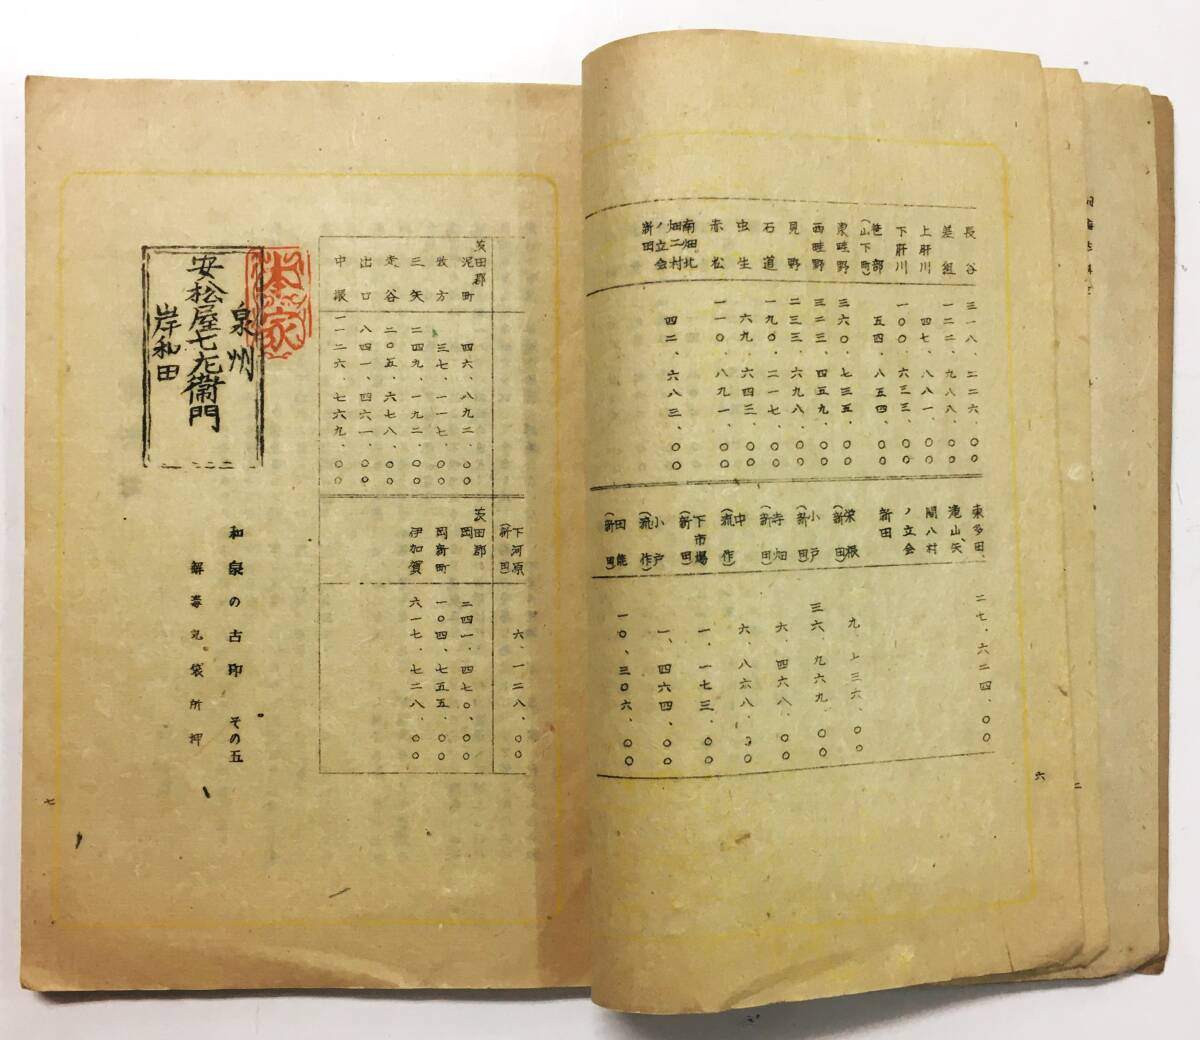 長谷 三一八、二二六、〇〇
差組 一二二、九八八、〇〇
上肝川 四七、八八一、〇〇
下肝川 一〇〇、六三三、〇〇
笹部(山下町) 五四、八五四、〇〇
東畦野 三六〇、七三五、〇〇
西畦野 三二三、四五九、〇〇
見野 二三三、六九八、〇〇
石道 一九〇、二一七、〇〇
虫生 六九、六四三、〇〇
赤松 一一〇、八九一、〇〇
南畑北
畑二村
ノ立会
新田 四二、六八三、〇〇
東多田、
滝山、矢
問八村
ノ立会
新田 二七、六二四、〇〇
栄根(新田) 九、七三六、〇〇
小戸(新田) 三六、九六九、〇〇
寺畑(新田) 六、四六八、〇〇
中(流作) 六、八六八、〇〇
下市場(新田) 一、一七三、〇〇
小戸(流作) 一、四六四、〇〇
田能(新田) 一〇、三〇六、〇〇
六
二
茨田郡
泥町 四六、八九二、〇〇
牧方 三七、一一七、〇〇
三矢 二四九、一九二、〇〇
走谷 二〇五、六七八、〇〇
出口 八四一、四六一、〇〇
中振 一一二六、七六九、〇〇
下河原(新田) 六、一二八、〇〇
茨田郡
岡 二四一、四七〇、〇〇
岡新町 一〇四、七五五、〇〇
伊加賀 六一七、七二八、〇〇
本家
泉州
安松屋七左衞門
岸和田
和泉の古印 その五
解毒丸袋所押
七